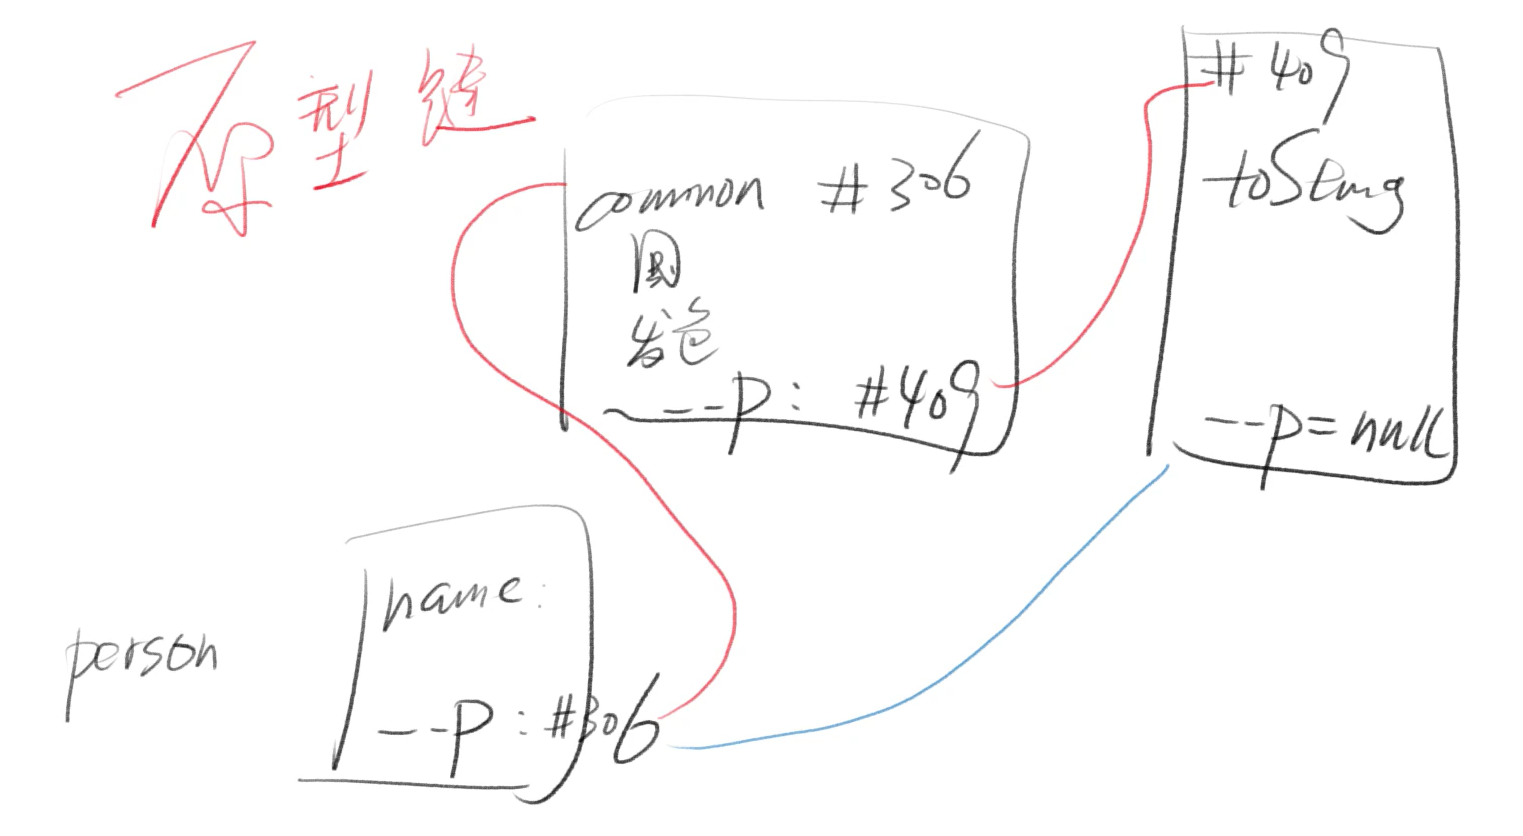 原型链
common #306
国
发色
--p: #409
#409
toString
--p=null
person
name:
--p:#306